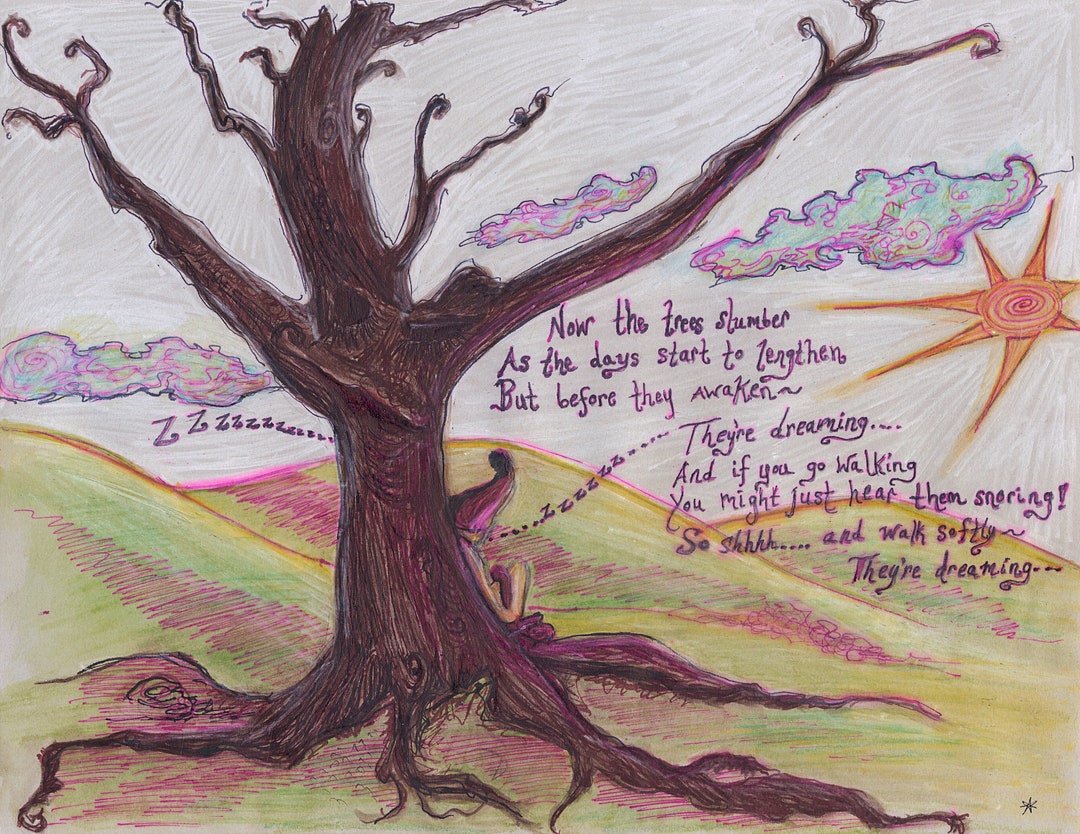 Now the trees slumber
As the days start to lengthen
But before they awaken~
They're dreaming....
And if you go walking
You might just hear them snoring!
So shhhh.... and walk softly~
They're dreaming...
Z Z Z z z z z z z ....
....z z z z z z....